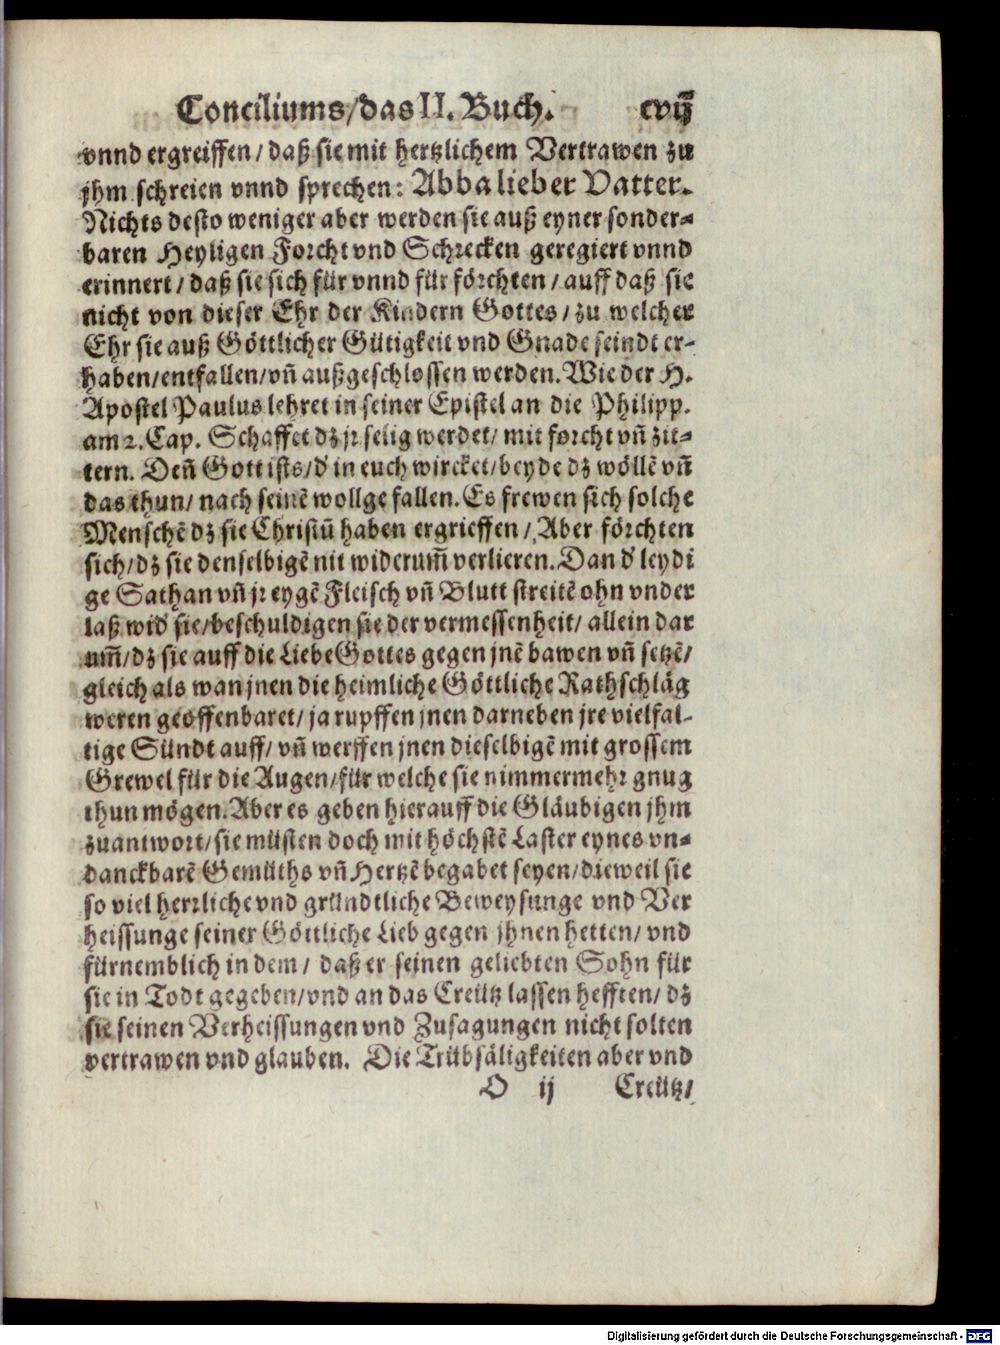 Conciliums/das II. Buch. cvij
vnnd ergreiffen/ daß sie mit hertzlichem Vertrawen zu
jhm schreien vnnd sprechen: Abba lieber Vatter.
Nichts desto weniger aber werden sie auß eyner sonder-
baren Heyligen Forcht vnd Schrecken geregiert vnnd
erinnert/ daß sie sich für vnnd für förchten/ auff daß sie
nicht von dieser Ehr der Kindern Gottes/ zu welcher
Ehr sie auß Göttlicher Gütigkeit vnd Gnade seindt er-
haben/entfallen/vñ außgeschlossen werden. Wie der H.
Apostel Paulus lehret in seiner Epistel an die Philipp.
am 2. Cap. Schaffet dz jr selig werdet/ mit forcht vñ zit-
tern. Deñ Gott ists/ď in euch wircket/beyde dz wöllē vñ
das thun/ nach seinē wollgefallen. Es frewen sich solche
Menschē dz sie Christū haben ergrieffen/ Aber förchten
sich/dz sie denselbigē nit widerum̃ verlieren. Dan ď leydi
ge Sathan vñ jr eygē Fleisch vñ Blutt streitē ohn vnder
laß wiď sie/beschuldigen sie der vermessenheit/ allein dar
um̃/dz sie auff die Liebe Gottes gegen jnē bawen vñ setzē/
gleich als wan jnen die heimliche Göttliche Rathschläg
weren geoffenbaret/ ja rupffen jnen darneben jre vielfal-
tige Sündt auff/ vñ werffen jnen dieselbigē mit grossem
Grewel für die Augen/für welche sie nimmermehr gnug
thun mögen. Aber es geben hierauff die Gläubigen jhm
zuantwort/sie müsten doch mit höchstē Laster eynes vn-
danckbarē Gemüths vñ Hertzē begabet seyen/dieweil sie
so viel herrliche vnd gründtliche Beweysunge vnd Ver
heissunge seiner Göttliche Lieb gegen jhnen hetten/ vnd
fürnemblich in dem/ daß er seinen geliebten Sohn für
sie in Todt gegeben/vnd an das Creütz lassen hefften/ dz
sie seinen Verheissungen vnd Zusagungen nicht solten
vertrawen vnd glauben. Die Trübsäligkeiten aber vnd
O ij Creütz/
Digitalisierung gefördert durch die Deutsche Forschungsgemeinschaft - DFG